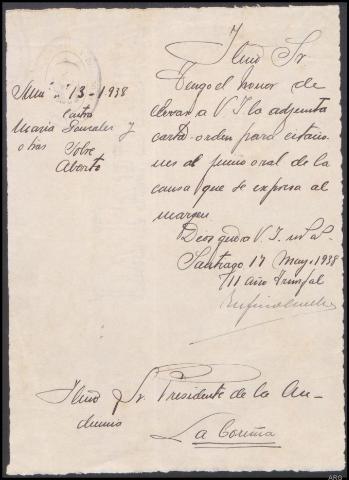 13-1938
contra
María González y
otras Sobre
Aborto
Ilmo Sr
Tengo el honor de
elevar a V.I. la adjunta
carta-orden para citacio
nes al juicio oral de la
causa que se expresa al
margen.
Dios gude a V.I. m. a.
Santiago 17 Mayo. 1938
II año triunfal
Ilmo Sr. Presidente de la Au-
diencia
La Coruña
ARG